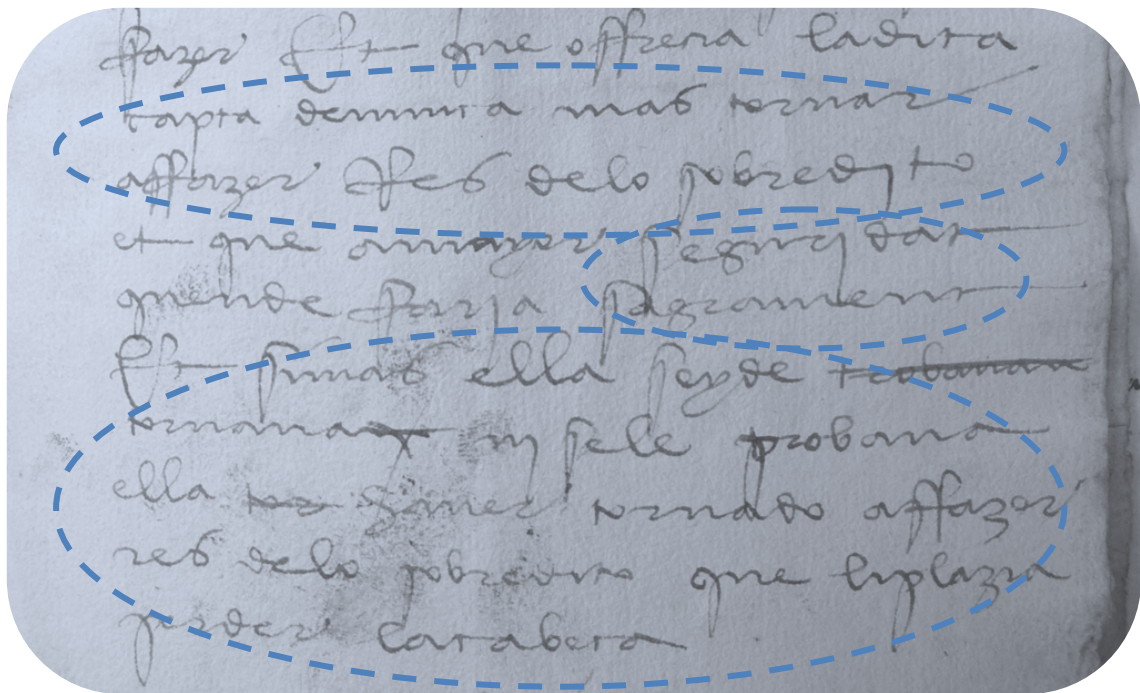 fazer Et que offrena ladita
tapia de nunca mas tornar
affazer Res delo sobredito
et que amayor seguridat
quende faria sagrament
Et si mas ella seyde trobauan
tornaua ny sele probaua
ella tor hauer tornado affazer
res delo sobredito que leplazia
perder la cabeça